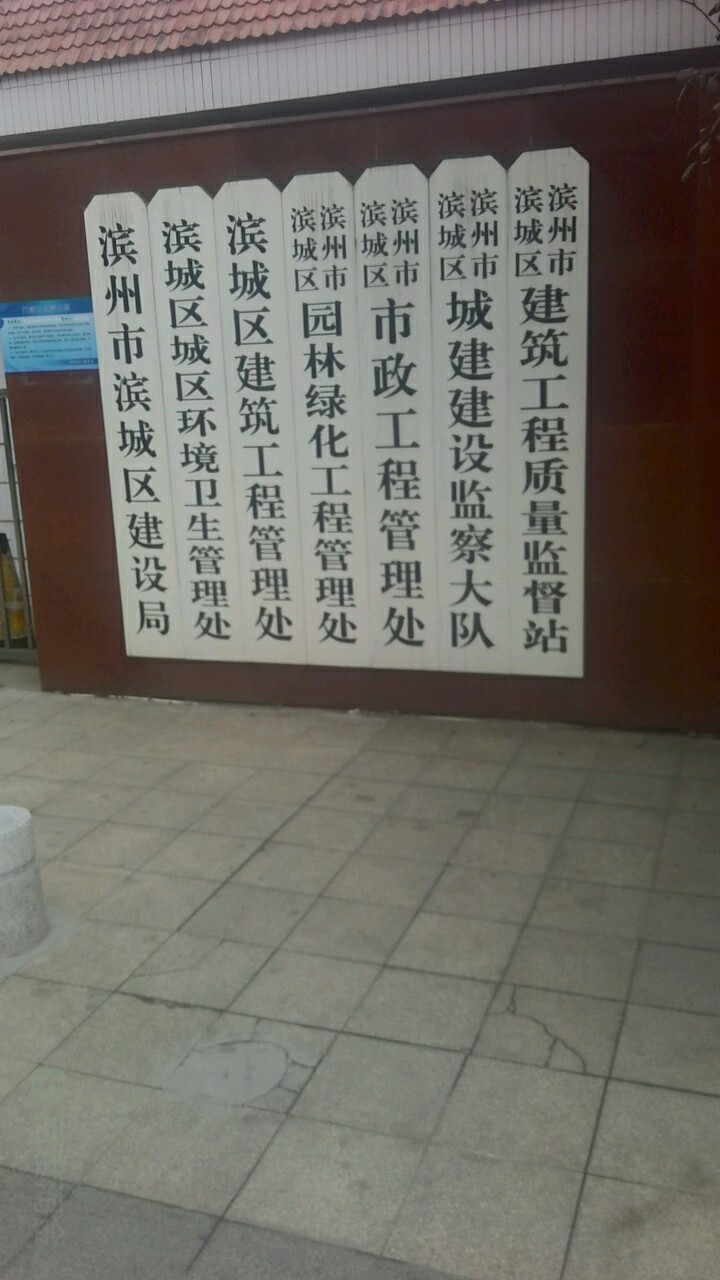 滨州市滨城区建设局
滨城区城区环境卫生管理处
滨城区建筑工程管理处
滨州市
滨城区
园林绿化工程管理处
滨州市
滨城区
市政工程管理处
滨州市
滨城区
城建建设监察大队
滨州市
滨城区
建筑工程质量监督站